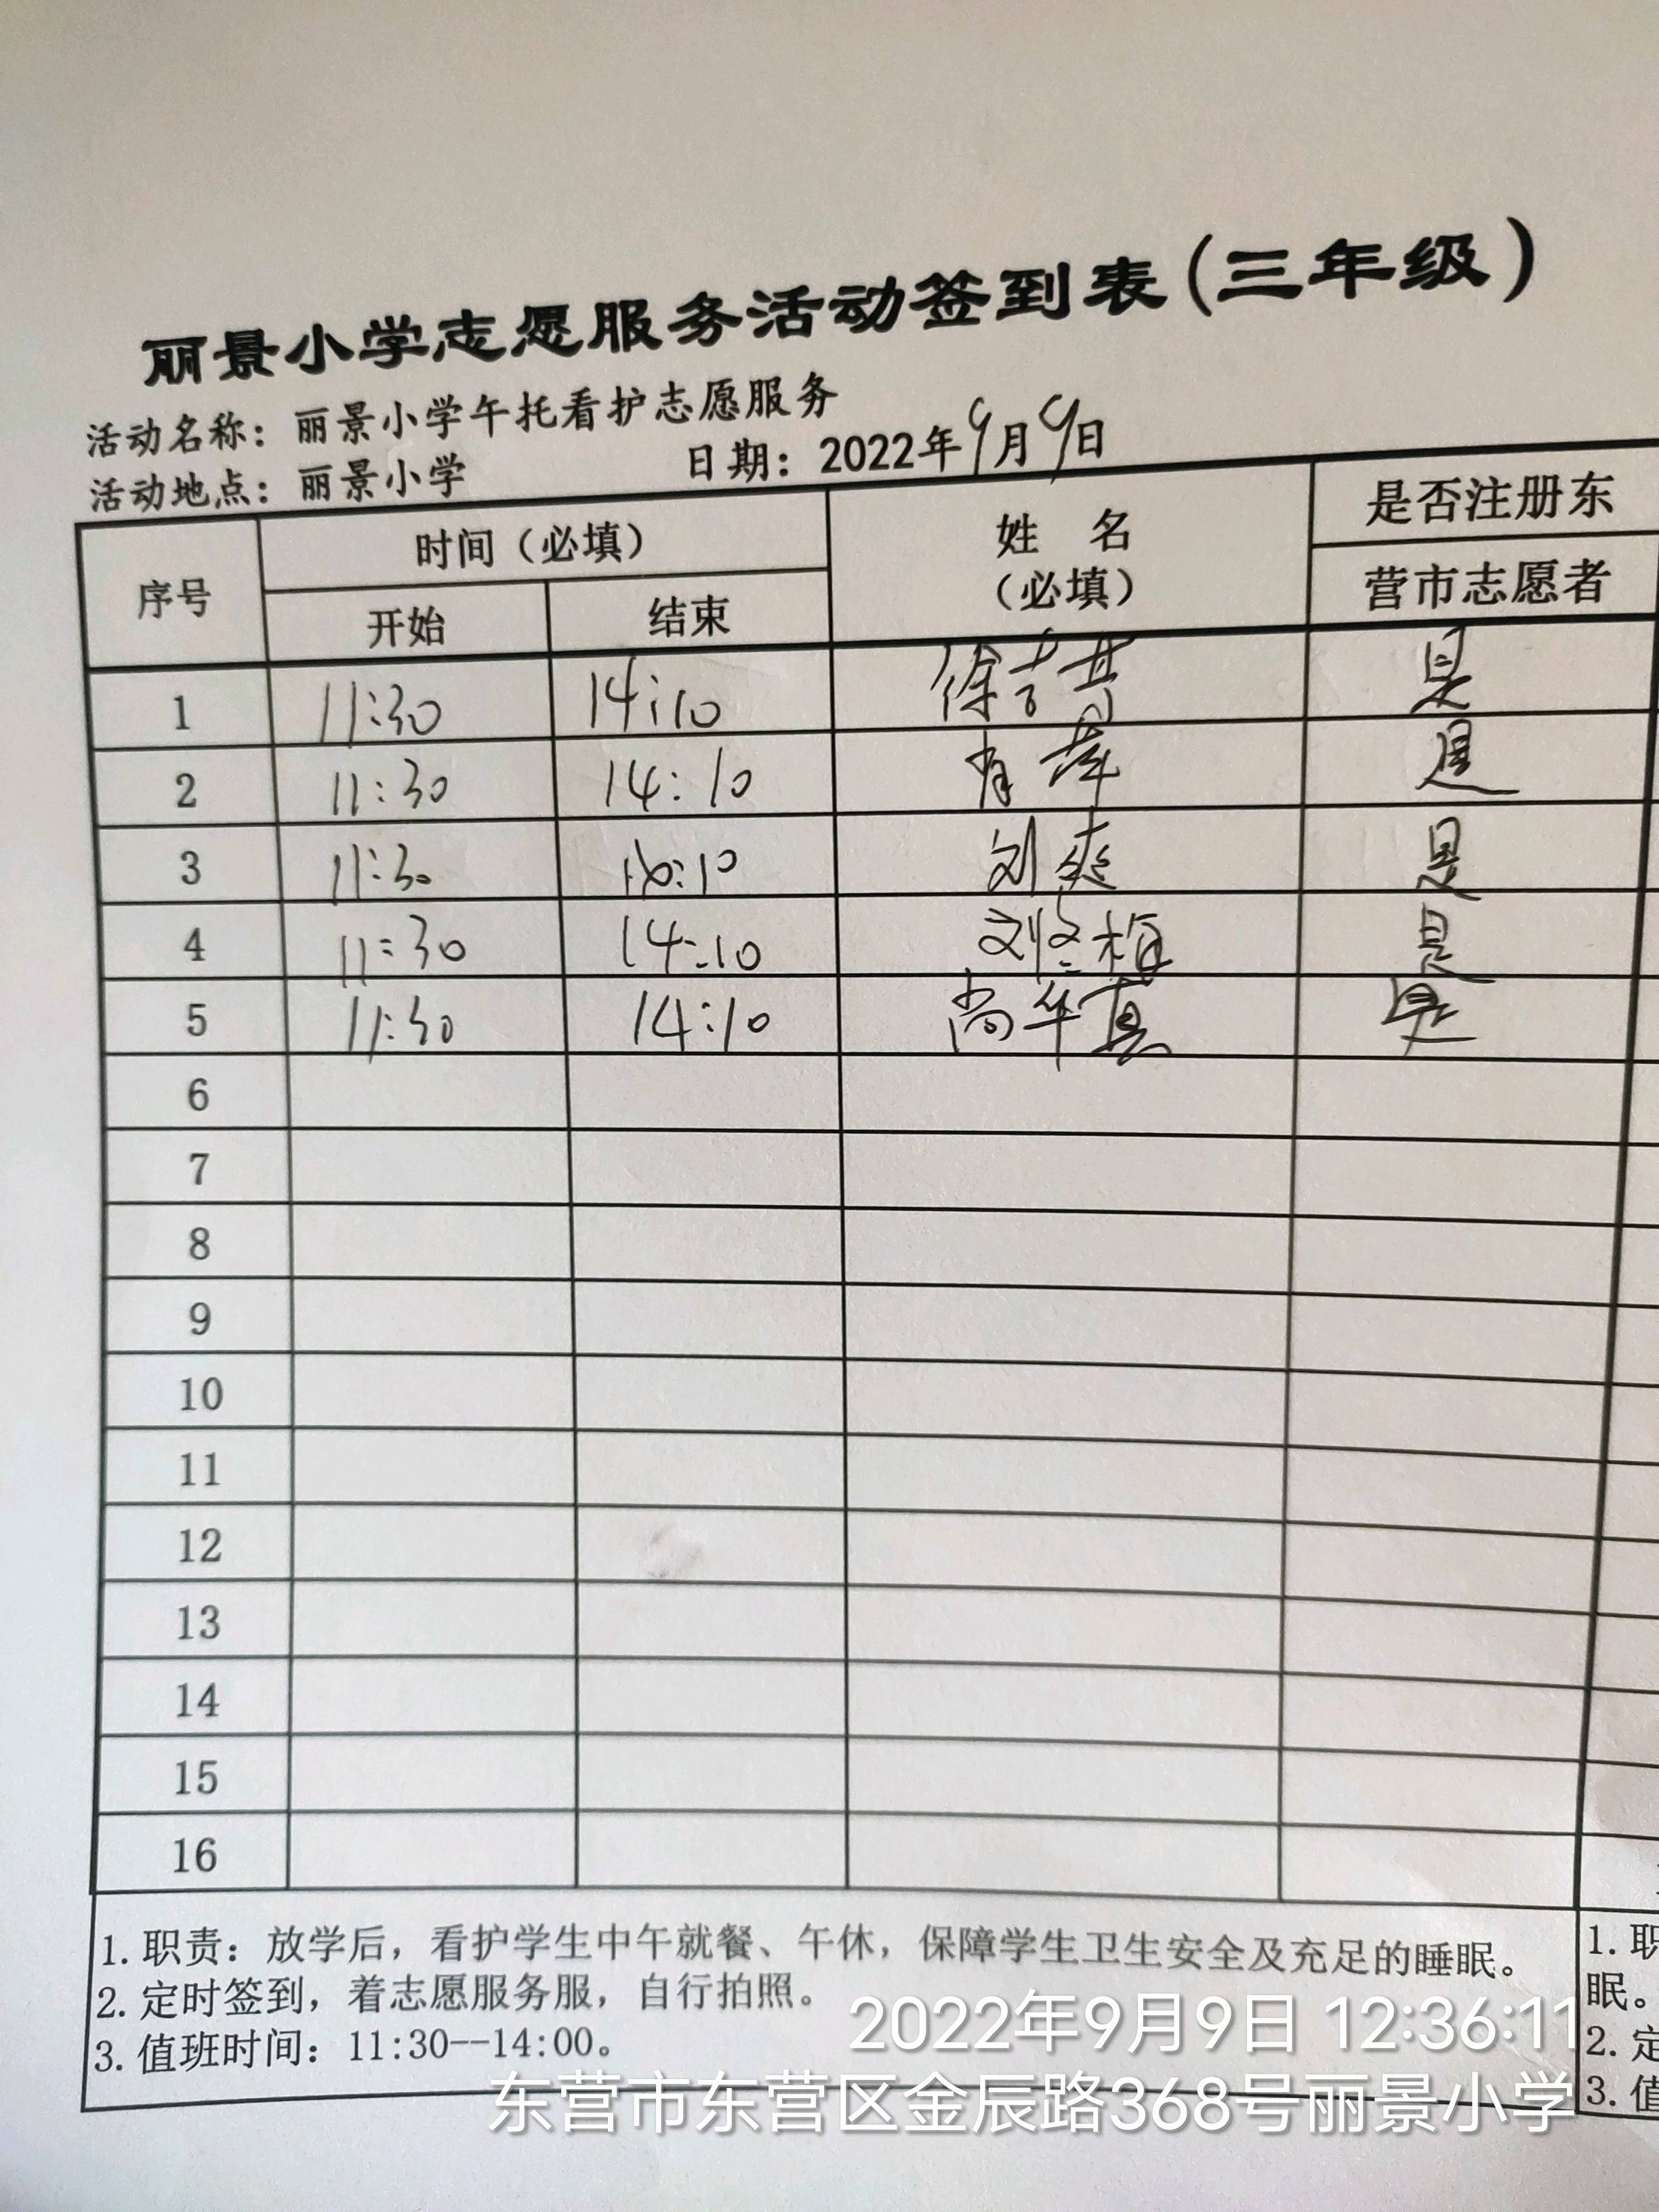 丽景小学志愿服务活动签到表(三年级)
活动名称：丽景小学午托看护志愿服务
活动地点：丽景小学 日期：2022年9月9日
序号 时间（必填） 姓 名 （必填） 是否注册东
开始 结束 营市志愿者
1 11:30 14:10 徐 是
2 11:30 14:10 肖苹 是
3 11:30 :10 刘爽 是
4 11:30 14:10 刘冬梅 是
5 11:30 14:10 尚华真 是
6
7
8
9
10
11
12
13
14
15
16
1. 职责：放学后，看护学生中午就餐、午休，保障学生卫生安全及充足的睡眠。
2. 定时签到，着志愿服务服，自行拍照。
3. 值班时间：11:30--14:00。
1. 职
眠。
2. 定
3. 值
2022年9月9日 12:36:11
东营市东营区金辰路368号丽景小学